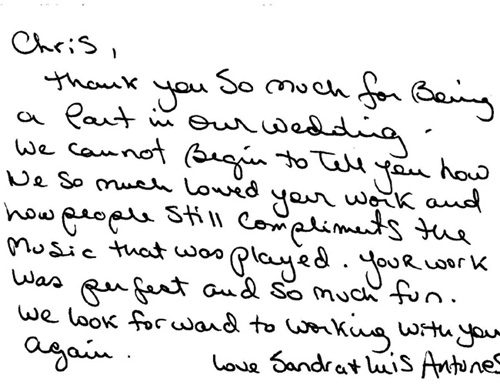 Chris,
thank you so much for Being
a Part in our wedding.
We cannot Begin to Tell you how
We so much loved your work and
how people still compliments the
Music that was played. your work
was perfect and so much fun.
We look forward to working with you
again. love Sandra + Luis Antunes